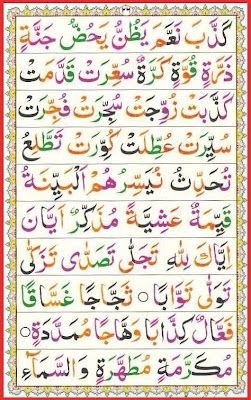 كَذَّبَ نَعَّمَ يَظُنُّ يَحُضُّ جَنَّةٍ
ذَرَّةٍ قُوَّةٍ كَرَّةٌ سُعِّرَتْ قَدَّمَتْ
كَذَّبَتْ زُوِّجَتْ سُجِّرَتْ فُجِّرَتْ
سُيِّرَتْ عُطِّلَتْ كُوِّرَتْ تَطَّلِعُ
تُحَدِّثُ نُيَسِّرُ هُمُ الْبَيِّنَةُ
قَيِّمَةُ عَشِيَّةً مُذَكِّرٌ اَيَّانَ
اِيَّاكَ لِلّٰهِ تَجَلّٰى تَصَدّٰى تَزَكّٰى
تَوَلّٰى تَوَّابًا ○ ثَجَّاجًا غَسَّاقًا
فَعَّالٌ كِذَّابًا وَهَّاجًا مُمَدَّدَةٍ ○
مُكَرَّمَةٍ مُطَهَّرَةٍ وَالسَّمَآءِ